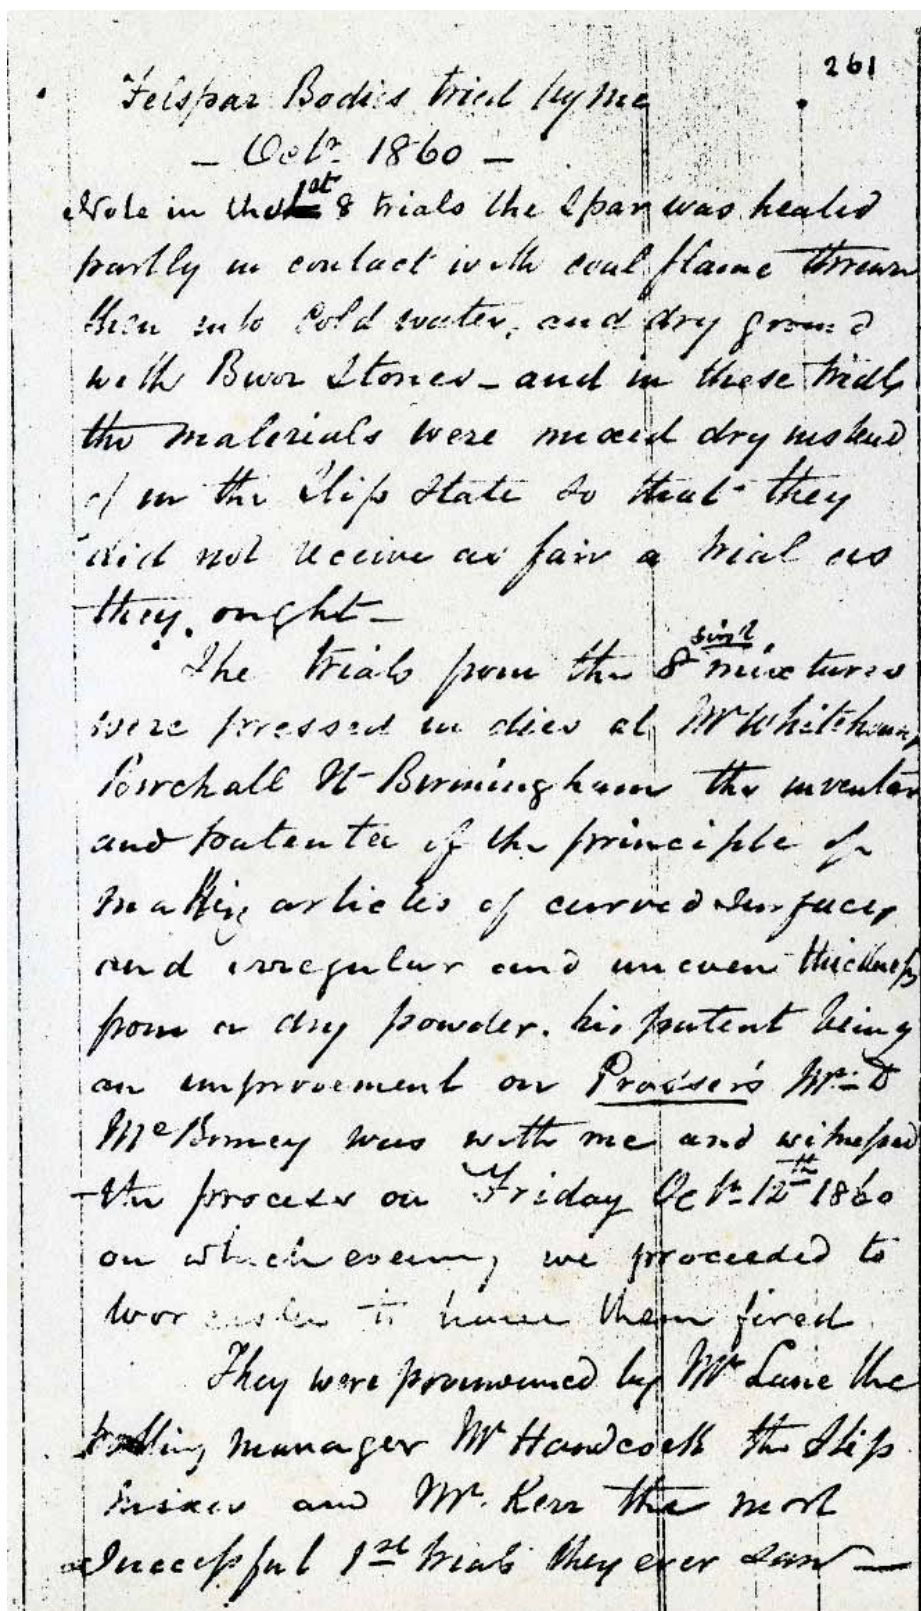 261
Felspar Bodies tried by me
— Octr. 1860 —
Note in the 1st 8 trials the Spar was heated
partly in contact with coal flame thrown
then into Cold water, and dry ground
with Burr Stones — and in these trials
the materials were mixed dry instead
of in the Slip State so that they
did not receive as fair a trial as
they ought —
The trials from the 8 first mixtures
were pressed in dies at Mr Whitehouse,
Birchall St Birmingham the inventor
and patentee of the principle of
making articles of curved Surfaces
and irregular and uneven thickness
from a dry powder. his patent being
an improvement on Prosser's Mr. D
McBirney was with me and witnessed
the process on Friday Octr. 12th 1860
on which evening we proceeded to
Worcester to have them fired.
They were pronounced by Mr Lane the
manager Mr Handcock the Slip
mixer and Mr. Kerr the most
Successful 1st trials they ever saw —